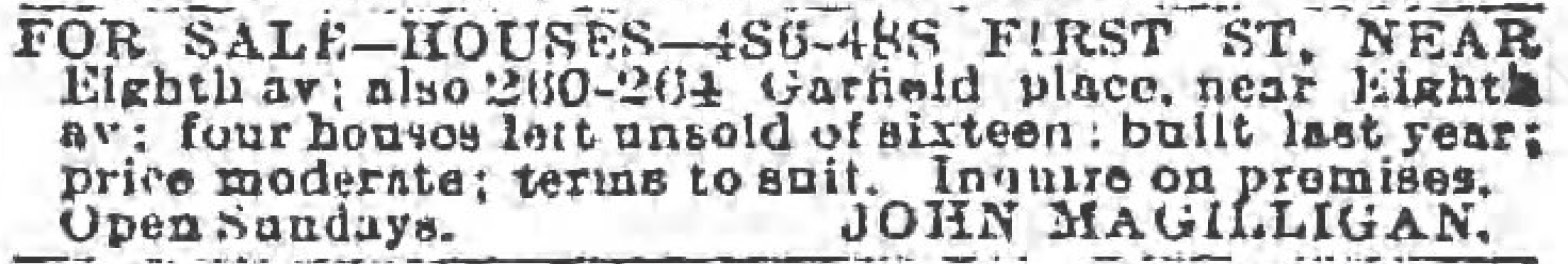 FOR SALE—HOUSES—486-488 FIRST ST, NEAR
Eighth av; also 260-264 Garfield place, near Eighth
av; four houses left unsold of sixteen; built last year;
price moderate; terms to suit. Inquire on premises.
Open Sundays. JOHN MAGILLIGAN.